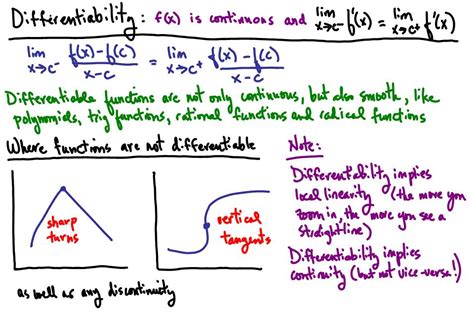 Differentiability: f(x) is continuous and lim x→c⁻ f'(x) = lim x→c⁺ f'(x)
lim x→c⁻ f(x)-f(c)/x-c = lim x→c⁺ f(x)-f(c)/x-c
Differentiable functions are not only continuous, but also smooth, like
polynomials, trig functions, rational functions and radical functions
Where functions are not differentiable
sharp
turns
vertical
tangents
as well as any discontinuity
Note:
Differentiability implies
local linearity (the more you
zoom in, the more you see a
straight line)
Differentiability implies
continuity (but not vice-versa!)